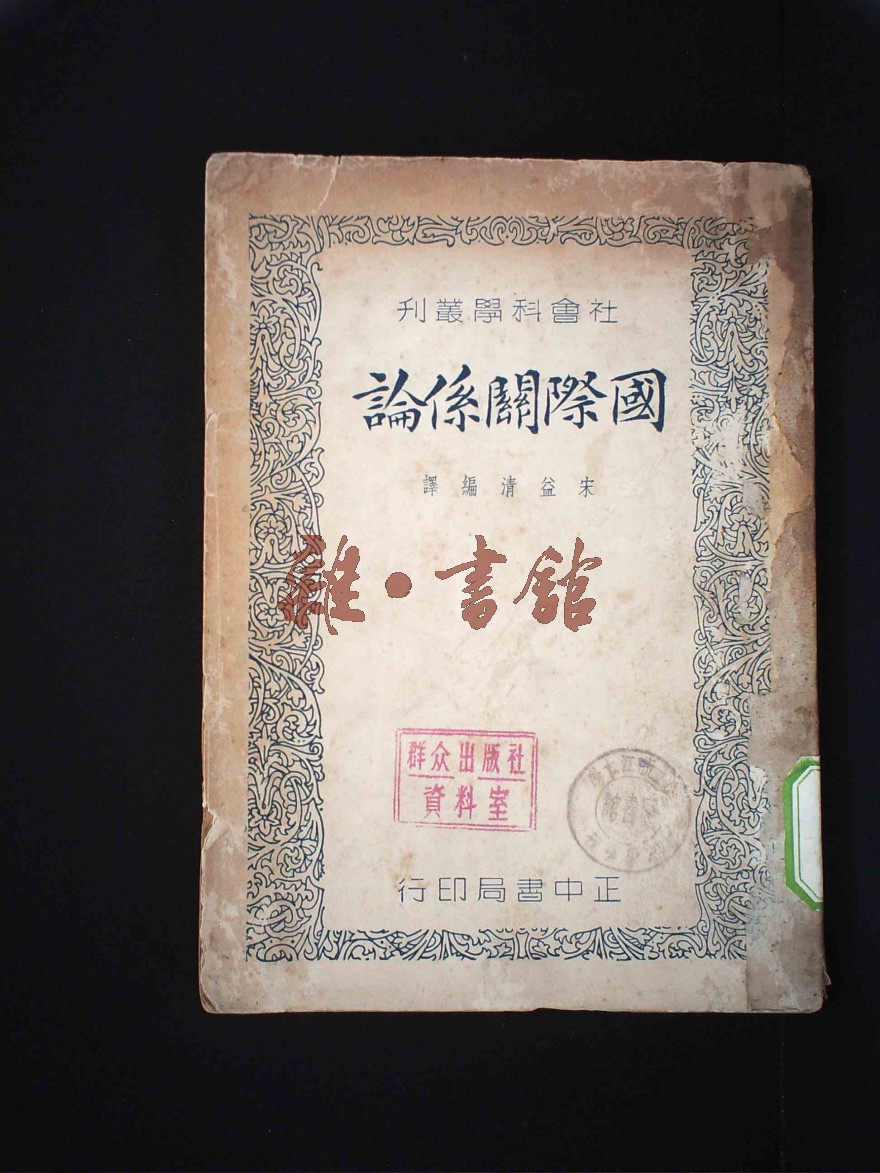 社會科學叢刊
國際關係論
宋益清編譯
雜·書館
群众出版社
資料室
書館
正中書局印行